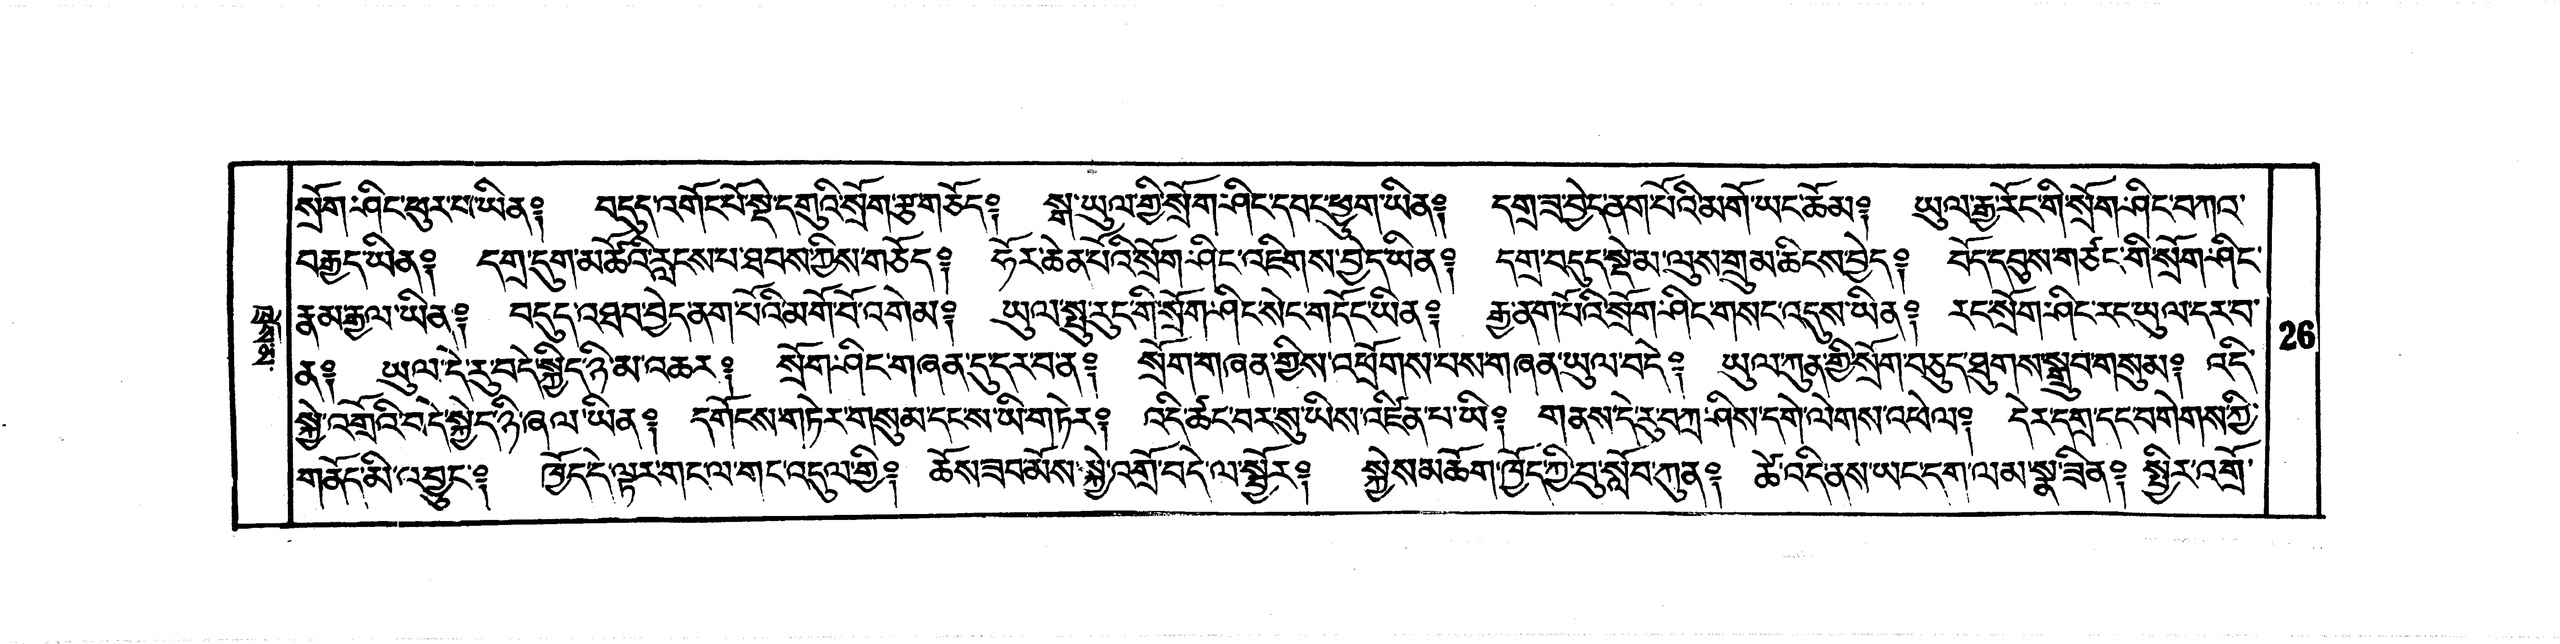 སྲོག་ཤིང་ཕུར་པ་ཡིན༔ བདུད་འགོང་པོ་སྡེ་དགུའི་སྲོག་རྩ་གཅོད༔ སྒ་ཡུལ་གྱི་སྲོག་ཤིང་དབང་ཕྱུག་ཡིན༔ དགྲ་ཟ་བྱེད་ནག་པོའི་མགོ་ཡང་ཆོམ༔ ཡུལ་རྒྱ་རོང་གི་སྲོག་ཤིང་བཀའ་
བརྒྱད་ཡིན༔ དགྲ་དུག་མཚོའི་རླངས་པ་ཐབས་ཀྱིས་གཅོད༔ ཧོར་ཆེན་པོའི་སྲོག་ཤིང་འཇིགས་བྱེད་ཡིན༔ དགྲ་བདུད་སྡེ་མ་ལུས་གྲུམ་ཆིངས་བྱེད༔ བོད་དབུས་གཙང་གི་སྲོག་ཤིང་
རྣམ་རྒྱལ་ཡིན༔ བདུད་འཐབ་བྱེད་ནག་པོའི་མགོ་བོ་འགེམ༔ ཡུལ་སྤུ་རུང་གི་སྲོག་ཤིང་སེང་གདོང་ཡིན༔ རྒྱ་ནག་པོའི་སྲོག་ཤིང་གསང་འདུས་ཡིན༔ རང་སྲོག་ཤིང་རང་ཡུལ་དར་བ་
ན༔ ཡུལ་དེ་རུ་བདེ་སྐྱིད་ཉི་མ་འཆར༔ སྲོག་ཤིང་གཞན་དུ་དར་བ་ན༔ སྲོག་གཞན་གྱིས་འཕྲོགས་པས་གཞན་ཡུལ་བདེ༔ ཡུལ་ཀུན་གྱི་སྲོག་བཅུད་ཐུགས་སྒྲུབ་གསུམ༔ འདི་
སྐྱེ་འགྲོའི་བདེ་སྐྱིད་ཉི་ཞལ་ཡིན༔ དགོངས་གཏེར་གསུམ་དངས་ཡི་གཏེར༔ འདི་ཚང་བར་སུ་ཡིས་འཛིན་པ་ཡི༔ གནས་དེ་རུ་བཀྲ་ཤིས་དགེ་ལེགས་འཕེལ༔ དེར་དགྲ་དང་བགེགས་ཀྱི་
གནོད་མི་འབྱུང༔ ཁྱོད་དེ་ལྟར་གང་ལ་གང་འདུལ་གྱི༔ ཆོས་ཟབ་མོས་སྐྱེ་འགྲོ་བདེ་ལ་སྦྱོར༔ སྐྱེས་མཆོག་ཁྱོད་ཀྱི་བུ་སློབ་ཀུན༔ ཚེ་འདི་ནས་ཡང་དག་ལམ་སྣ་ཟིན༔ སྤྱིར་འགྲོ་
26